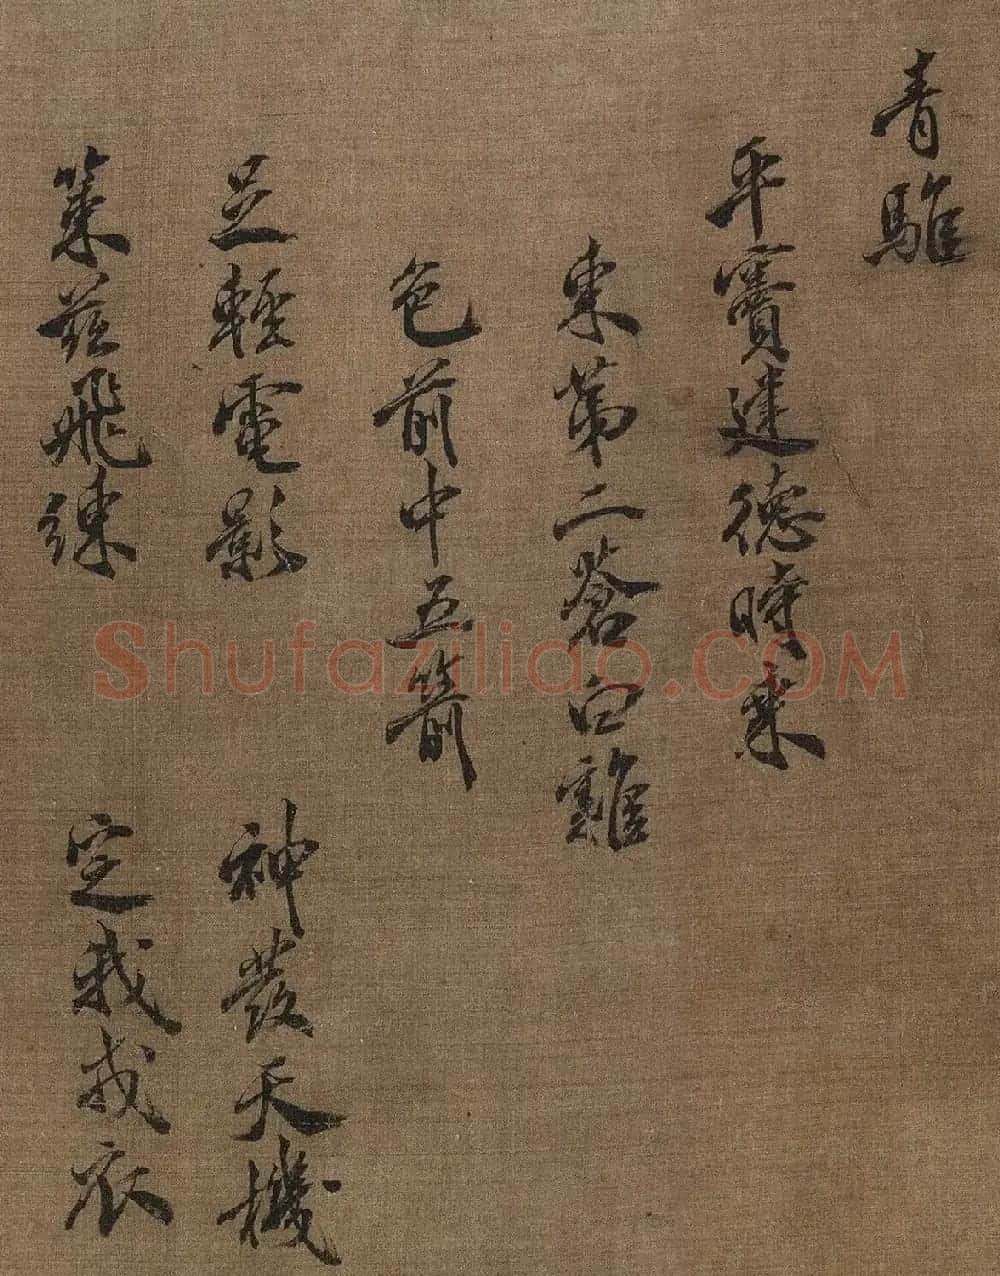 青騅
平竇建德時乘
東第二蒼白雜
色前中五箭
足輕電影 神發天機
策茲飛練 定我戎衣
Shufaziliao.COM